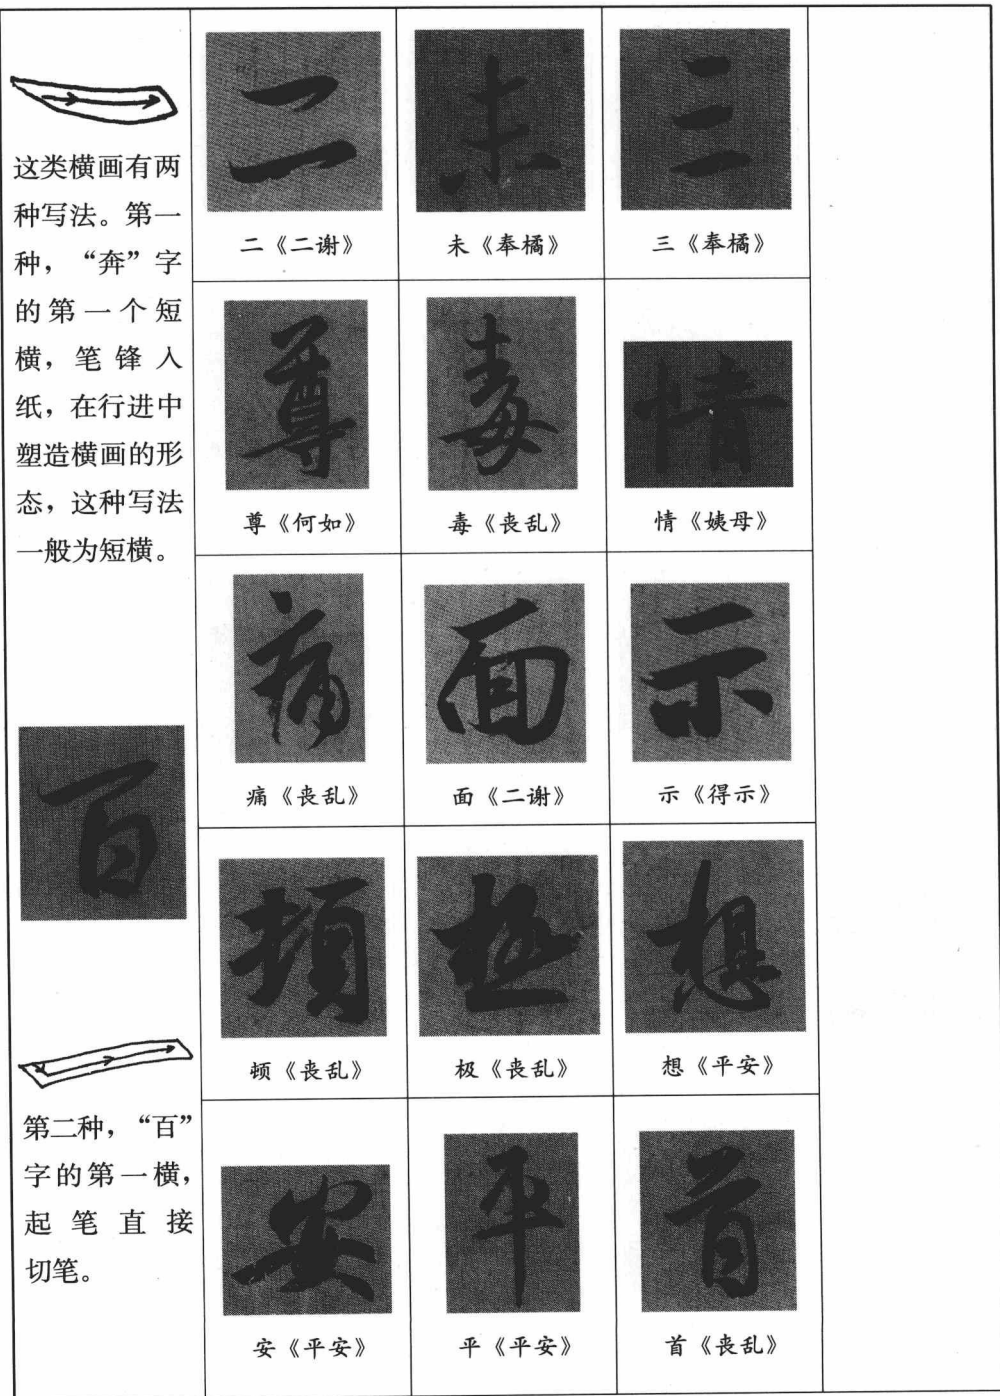 这类横画有两
种写法。第一
种，“奔”字
的第一个短
横，笔锋入
纸，在行进中
塑造横画的形
态，这种写法
一般为短横。
百
第二种，“百”
字的第一横，
起笔直接
切笔。
二
未
三
二《二谢》
未《奉橘》
三《奉橘》
尊
毒
情
尊《何如》
毒《丧乱》
情《姨母》
痛
面
示
痛《丧乱》
面《二谢》
示《得示》
顿
极
想
顿《丧乱》
极《丧乱》
想《平安》
安
平
首
安《平安》
平《平安》
首《丧乱》